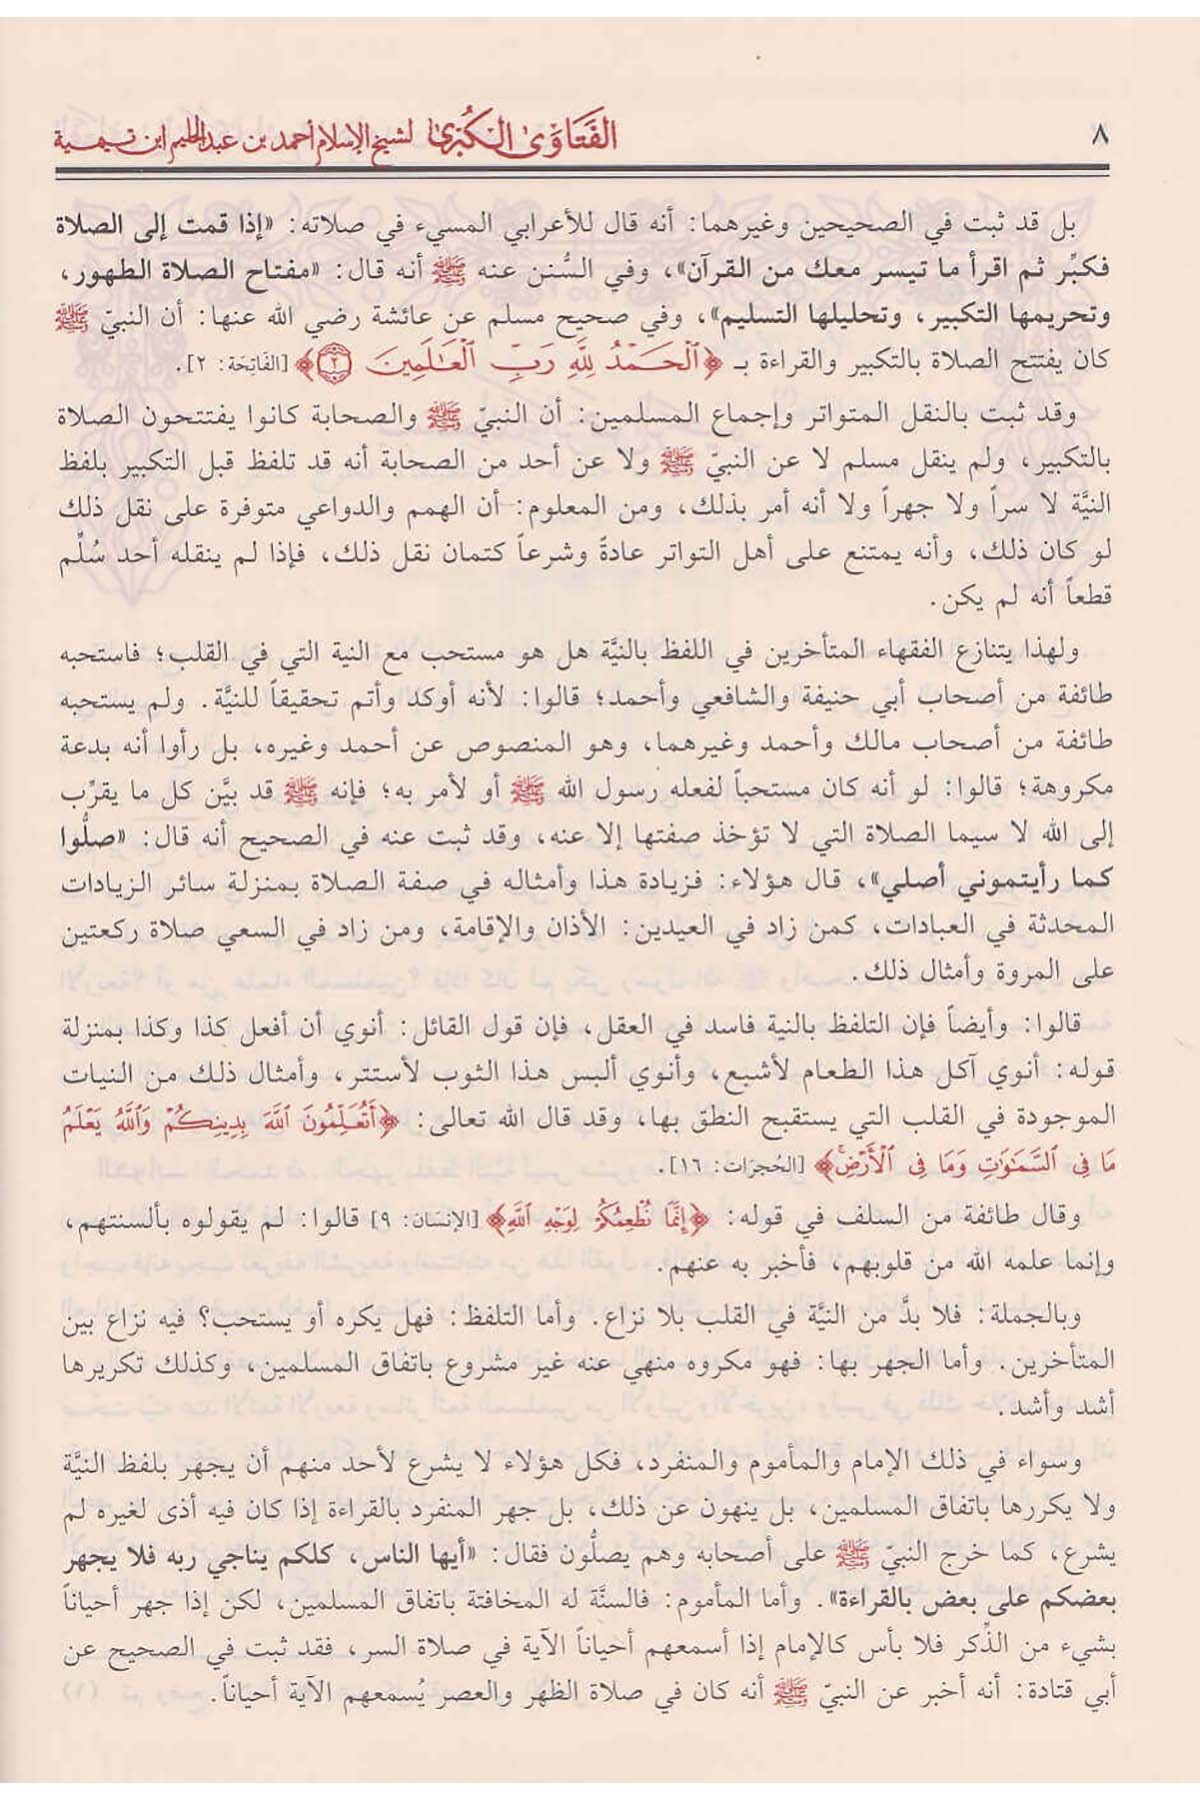 ٨
الفَتَاوَىٰ الكُبْرَىٰ لشيخ الإسلام أحمد بن عبد الحليم ابن تيمية
بل قد ثبت في الصحيحين وغيرهما: أنه قال للأعرابي المسيء في صلاته: «إذا قمت إلى الصلاة
فكبِّر ثم اقرأ ما تيسر معك من القرآن»، وفي السُّنن عنه ﷺ أنه قال: «مفتاح الصلاة الطهور،
وتحريمها التكبير، وتحليلها التسليم»، وفي صحيح مسلم عن عائشة رضي الله عنها: أن النبيّ ﷺ
كان يفتتح الصلاة بالتكبير والقراءة بـ ﴿ٱلْحَمْدُ لِلَّهِ رَبِّ ٱلْعَـٰلَمِينَ ٢﴾ [الفَاتِحَة: ٢].
وقد ثبت بالنقل المتواتر وإجماع المسلمين: أن النبيّ ﷺ والصحابة كانوا يفتتحون الصلاة
بالتكبير، ولم ينقل مسلم لا عن النبيّ ﷺ ولا عن أحد من الصحابة أنه قد تلفظ قبل التكبير بلفظ
النيَّة لا سراً ولا جهراً ولا أنه أمر بذلك، ومن المعلوم: أن الهمم والدواعي متوفرة على نقل ذلك
لو كان ذلك، وأنه يمتنع على أهل التواتر عادةً وشرعاً كتمان نقل ذلك، فإذا لم ينقله أحد سُلِّم
قطعاً أنه لم يكن.
ولهذا يتنازع الفقهاء المتأخرين في اللفظ بالنيَّة هل هو مستحب مع النية التي في القلب؛ فاستحبه
طائفة من أصحاب أبي حنيفة والشافعي وأحمد؛ قالوا: لأنه أوكد وأتم تحقيقاً للنيَّة. ولم يستحبه
طائفة من أصحاب مالك وأحمد وغيرهما، وهو المنصوص عن أحمد وغيره، بل رأوا أنه بدعة
مكروهة؛ قالوا: لو أنه كان مستحباً لفعله رسول الله ﷺ أو لأمر به؛ فإنه ﷺ قد بيَّن كل ما يقرِّب
إلى الله لا سيما الصلاة التي لا تؤخذ صفتها إلا عنه، وقد ثبت عنه في الصحيح أنه قال: «صلُّوا
كما رأيتموني أصلي»، قال هؤلاء: فزيادة هذا وأمثاله في صفة الصلاة بمنزلة سائر الزيادات
المحدثة في العبادات، كمن زاد في العيدين: الأذان والإقامة، ومن زاد في السعي صلاة ركعتين
على المروة وأمثال ذلك.
قالوا: وأيضاً فإن التلفظ بالنية فاسد في العقل، فإن قول القائل: أنوي أن أفعل كذا وكذا بمنزلة
قوله: أنوي آكل هذا الطعام لأشبع، وأنوي ألبس هذا الثوب لأستتر، وأمثال ذلك من النيات
الموجودة في القلب التي يستقبح النطق بها، وقد قال الله تعالى: ﴿أَتُعَلِّمُونَ ٱللَّهَ بِدِينِكُمْ وَٱللَّهُ يَعْلَمُ
مَا فِى ٱلسَّمَـٰوَٰتِ وَمَا فِى ٱلْأَرْضِ﴾ [الحُجرَات: ١٦].
وقال طائفة من السلف في قوله: ﴿إِنَّمَا نُطْعِمُكُمْ لِوَجْهِ ٱللَّهِ﴾ [الإنسَان: ٩] قالوا: لم يقولوه بألسنتهم،
وإنما علمه الله من قلوبهم، فأخبر به عنهم.
وبالجملة: فلا بدَّ من النيَّة في القلب بلا نزاع. وأما التلفظ: فهل يكره أو يستحب؟ فيه نزاع بين
المتأخرين. وأما الجهر بها: فهو مكروه منهي عنه غير مشروع باتفاق المسلمين، وكذلك تكريرها
أشد وأشد.
وسواء في ذلك الإمام والمأموم والمنفرد، فكل هؤلاء لا يشرع لأحد منهم أن يجهر بلفظ النيَّة
ولا يكررها باتفاق المسلمين، بل ينهون عن ذلك، بل جهر المنفرد بالقراءة إذا كان فيه أذى لغيره لم
يشرع، كما خرج النبيّ ﷺ على أصحابه وهم يصلُّون فقال: «أيها الناس، كلكم يناجي ربه فلا يجهر
بعضكم على بعض بالقراءة». وأما المأموم: فالسنَّة له المخافتة باتفاق المسلمين، لكن إذا جهر أحياناً
بشيء من الذِّكر فلا بأس كالإمام إذا أسمعهم أحياناً الآية في صلاة السر، فقد ثبت في الصحيح عن
أبي قتادة: أنه أخبر عن النبيّ ﷺ أنه كان في صلاة الظهر والعصر يُسمعهم الآية أحياناً.